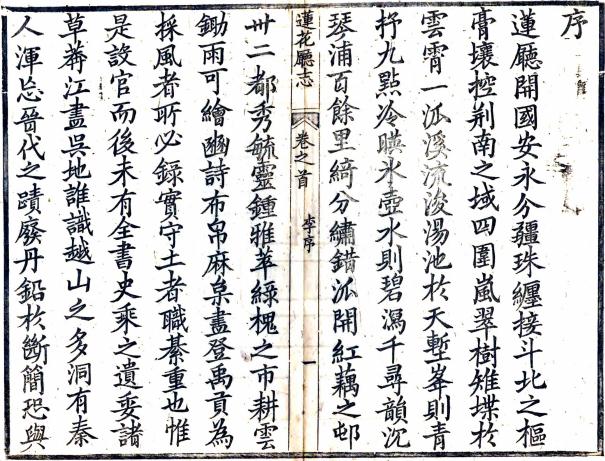 序
蓮廳開國安永分疆珠纏接斗北之樞
膏壤控荆南之域四圍嵐翠樹雉堞於
雲霄一派溪流浚湯池於天塹峯則青
抒九點冷暎水壺水則碧瀉千尋韻沉
琴浦百餘里綺分繡錯派開紅藕之邨
蓮花廳志
卷之首
李序
一
卅二都秀毓靈鍾雅萃綠槐之市耕雲
鋤雨可繪豳詩布帛麻枲盡登禹貢為
採風者所必錄實守土者職綦重也惟
是設官而後未有全書史乘之遺委諸
草莽江盡吳地誰識越山之多洞有秦
人渾忘晉代之蹟廢丹鉛於斷簡恐與